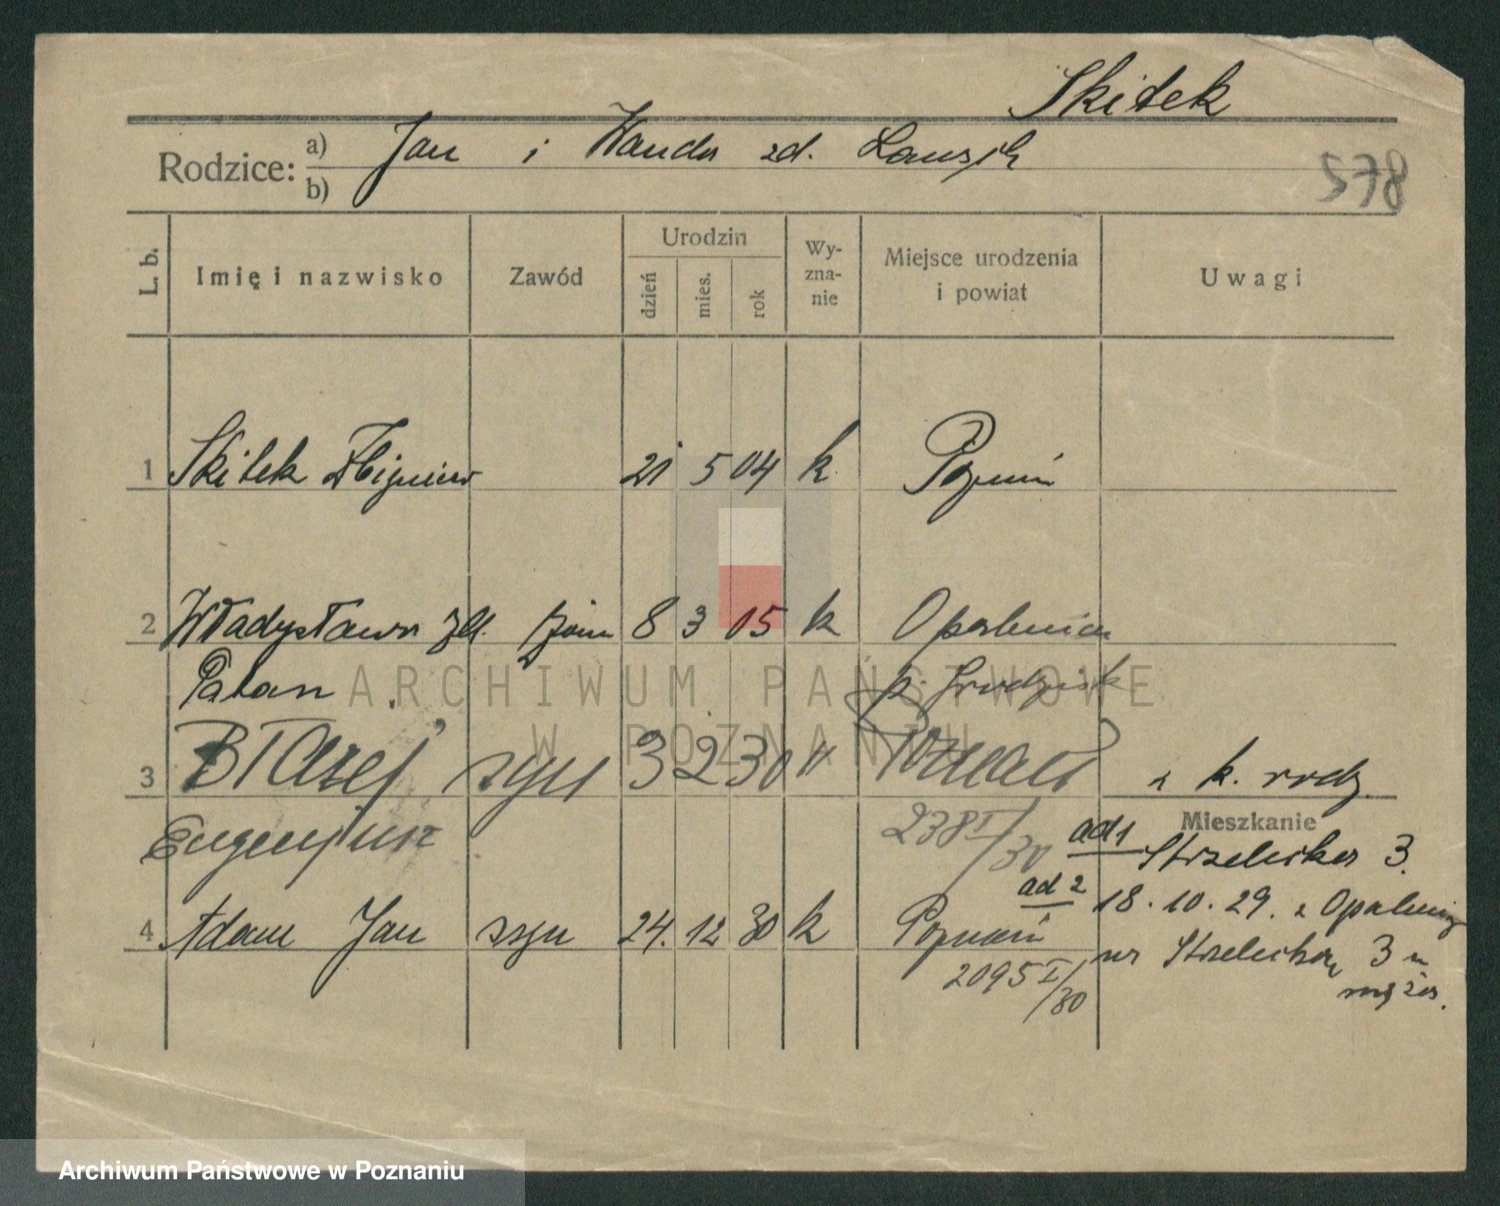 Skitek
Rodzice: a) Jan i Wanda zd.
b)
578
L. b. Imię i nazwisko Zawód Urodzin dzień mies. rok Wy-zna-nie Miejsce urodzenia i powiat Uwagi
1 Skitek Zbigniew 21 5 04 k. Poznań
2 Władysława zd. żona 8 3 05 k Opalenica
Patan p. Grodzisk
ARCHIWUM PAŃSTWOWE
W POZNANIU
3 Błażej syn 3 2 30 " Poznań z k. rodz.
Mieszkanie
Eugeniusz 238 I/30 ad 1 Strzelecka 3.
ad 2 18.10.29. z Opalenicy
4 Adam Jan syn 24. 12 30 k Poznań na Strzelecką 3 u
2095 I/30 męża.
Archiwum Państwowe w Poznaniu